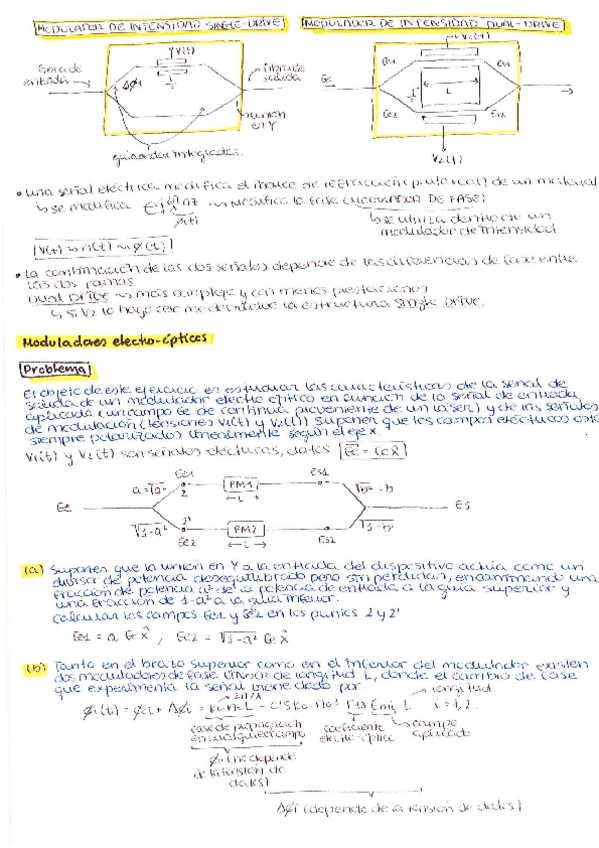 MODULADOR DE INTENSIDAD SINGLE-DRIVE
MODULADOR DE INTENSIDAD DUAL-DRIVE
V(t)
V1(t)
Guía de entrada
Δϕ1
fibra de salida
unión en Y
guiaondas integradas.
Ee
Ee1
Es1
L
Ee2
Es2
V2(t)
• una señal eléctrica modifica el índice de refracción de un material
↳ se modifica
modifica la fase (MODULADOR DE FASE)
↳ se utiliza dentro de un
modulador de intensidad
V(t) → n(t) → ϕ(t)
• La combinación de las dos señales depende de las diferencias de fase entre
las dos ramas.
DUAL DRIVE → más complejo y con menos prestaciones
↳ si V2 lo hago cero me devuelve la estructura SINGLE DRIVE.
Moduladores electro-ópticos
Problema
El objeto de este ejercicio es estudiar las características de la señal de
salida de un modulador electro óptico en función de la señal de entrada
aplicada (un campo Ee de continua proveniente de un láser) y de las señales
de modulación (tensiones V1(t) y V2(t)) Suponer que los campos eléctricos están
siempre polarizados linealmente según el eje x.
V1(t) y V2(t) son señales eléctricas, datos
Ee = Ee x̂
Ee
Ee1
2
PM1
L
Es1
Es
2'
Ee2
PM2
L
Es2
(a) Suponer que la unión en Y a la entrada del dispositivo actúa como un
divisor de potencia desequilibrado pero sin pérdidas, encaminando una
fracción de potencia a² de la potencia de entrada a la guía superior y
una fracción de 1-a² a la guía inferior.
Calcular los campos Ee1 y Ee2 en los puntos 2 y 2'
Ee1 = a Ee x̂ , Ee2 = √1-a² Ee x̂
(b) Tanto en el brazo superior como en el inferior del modulador existen
dos moduladores de fase (PMs) de longitud L, donde el cambio de fase
que experimenta la señal viene dado por:
longitud
ϕi(t) = ϕi + Δϕi = ki ni L - 0'5 k0 n0³ r33 Emi L i = 1, 2.
fase de propagación
en cualquier campo
coeficiente
electro-óptico
campo
aplicado
ϕi (no depende
de la tensión de
datos)
Δϕi (depende de la tensión de datos)